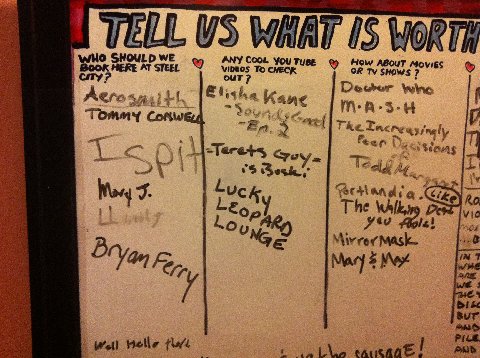 TELL US WHAT IS WORTH
WHO SHOULD WE
BOOK HERE AT STEEL
CITY?
Aerosmith
TOMMY CONWELL
I spit
Mary J.
Bryan Ferry
Well Hello there
ANY COOL YOU TUBE
VIDEOS TO CHECK
OUT?
Elisha Kane
-Sounds Good
-Ep. 2
-Terets Guy-
is Boski!
LUCKY
LEOPARD
LOUNGE
HOW ABOUT MOVIES
OR TV SHOWS?
Doctor Who
M·A·S·H
The Increasingly
Poor Decisions
of
Todd Margaret
Portlandia. Like
The Walking Dead
you fools!
MirrorMask
Mary & Max
the sausage!